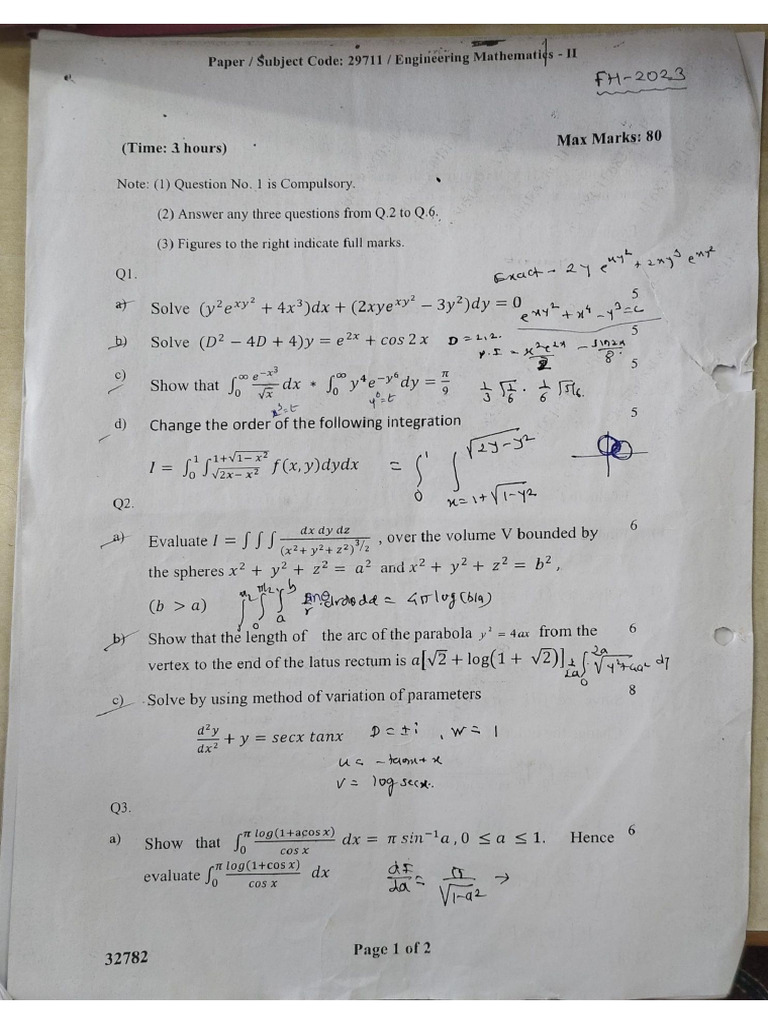 Paper / Subject Code: 29711 / Engineering Mathematics - II
FH-2023
(Time: 3 hours)
Max Marks: 80
Note: (1) Question No. 1 is Compulsory.
(2) Answer any three questions from Q.2 to Q.6.
(3) Figures to the right indicate full marks.
Q1.
Exact - 2y e^{xy²} + 2xy³ e^{xy²}
a) Solve (y²e^{xy²} + 4x³)dx + (2xye^{xy²} − 3y²)dy = 0 5
e^{xy²} + x⁴ − y³ = c
b) Solve (D² − 4D + 4)y = e^{2x} + cos 2x 5
D = 2,2.
P.I = x²e^{2x}/2 − sin2x/8.
c) Show that ∫₀^∞ e^{−x³}/√x dx * ∫₀^∞ y⁴e^{−y⁶}dy = π/9 5
x³=t y⁶=t
1/3 √1/6 · 1/6 √5/6.
d) Change the order of the following integration 5
I = ∫₀¹ ∫_{√2x−x²}^{1+√1−x²} f(x,y)dydx
= ∫₀¹ ∫_{x=1+√1−y²}^{√2y−y²}
Q2.
a) Evaluate I = ∫ ∫ ∫ dx dy dz/(x²+ y²+ z²)^{3/2} , over the volume V bounded by 6
the spheres x² + y² + z² = a² and x² + y² + z² = b²,
(b > a)
= 4π log(b/a)
b) Show that the length of the arc of the parabola y² = 4ax from the 6
vertex to the end of the latus rectum is a[√2 + log(1 + √2)]
1/2a ∫₀^{2a} √y²+4a² dy
c) Solve by using method of variation of parameters 8
d²y/dx² + y = secx tanx
D = ±i , W = 1
u = −tanx + x
v = log secx.
Q3.
a) Show that ∫₀^π log(1+acos x)/cos x dx = π sin⁻¹a , 0 ≤ a ≤ 1. Hence 6
evaluate ∫₀^π log(1+cos x)/cos x dx
dI/da = π/√1−a² →
32782
Page 1 of 2